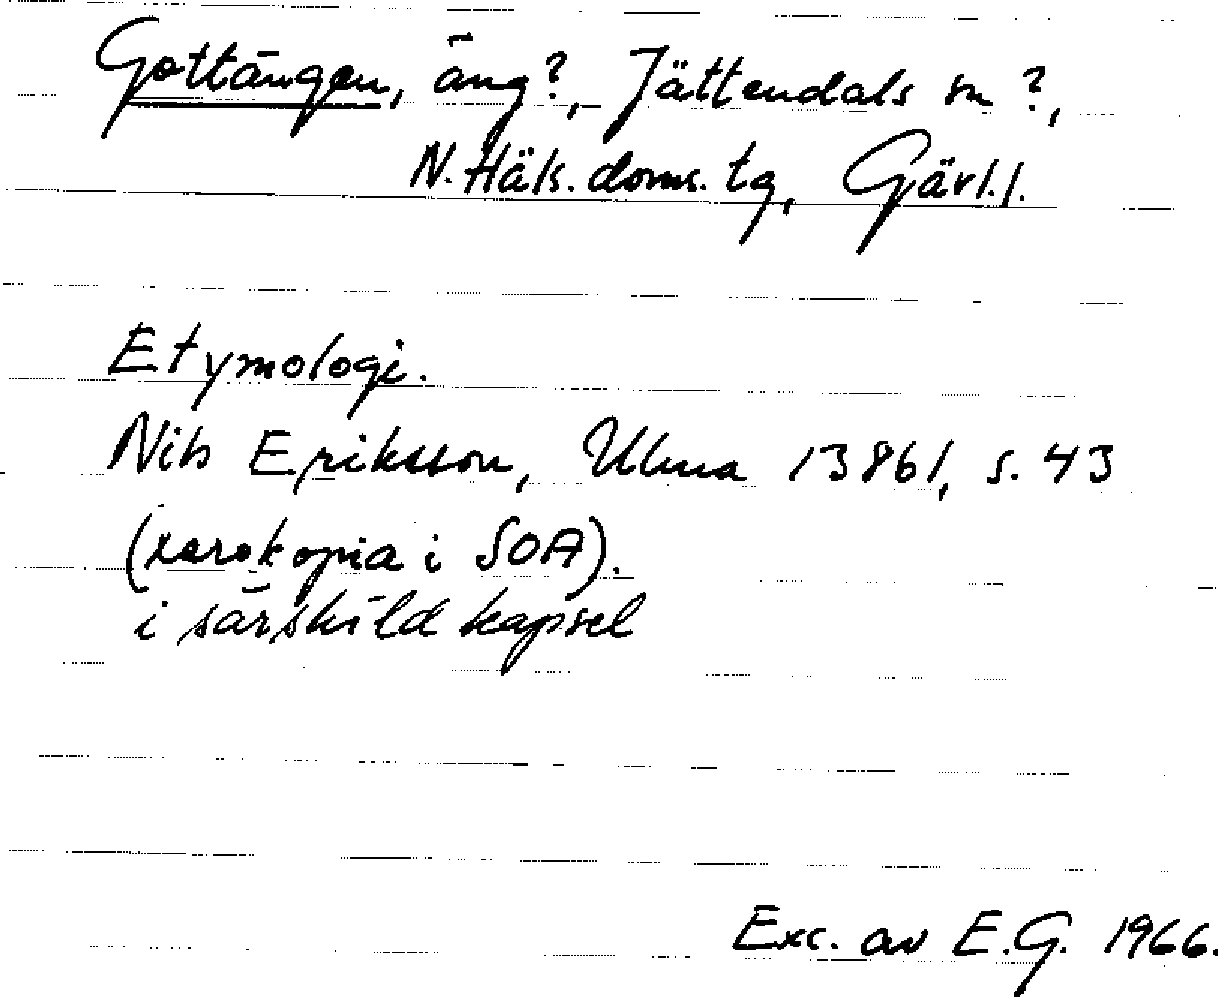 Gottängen, äng?, Jättendals sn?,
N. Häls. doms. tg, Gävl. l.
Etymologi.
Nils Eriksson, Ulma 13861, s. 43
(xerokopia i SOA).
i särskild kapsel
Exc. av E.G. 1966.